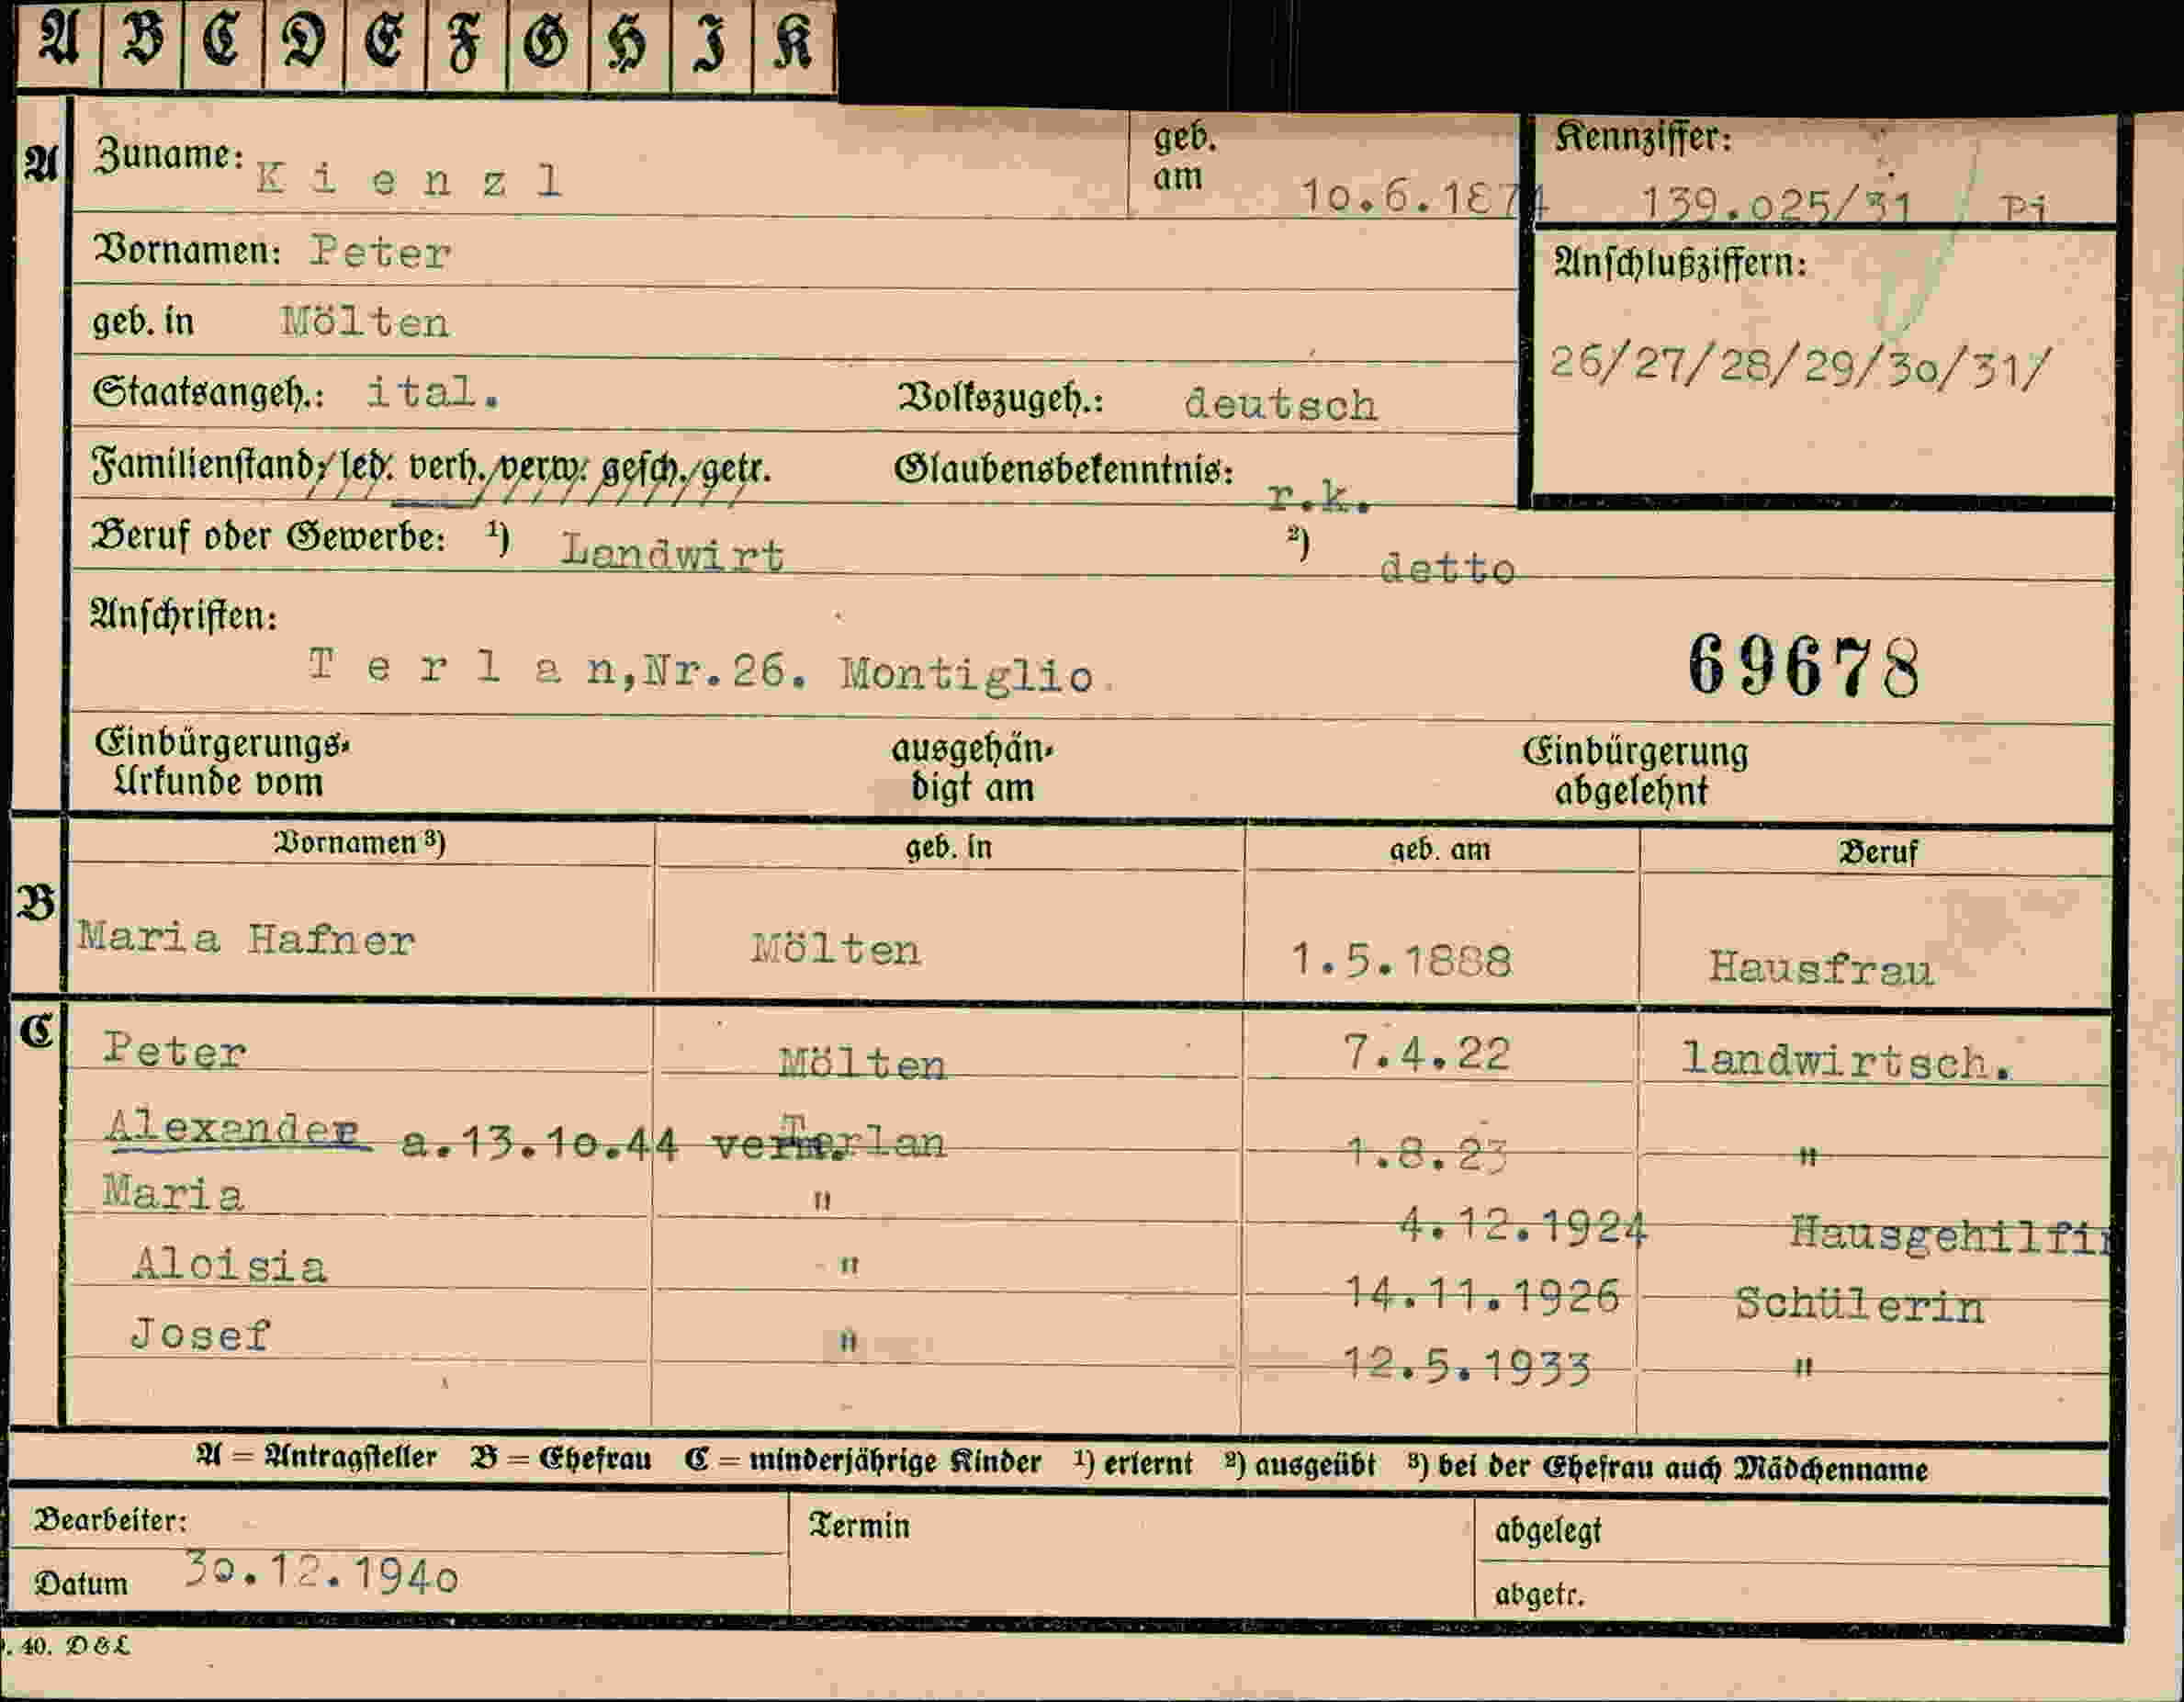 A B C D E F G H I K
A Zuname: Kienzl geb. am 10.6.1874 Kennziffer: 139.025/31 Pi
Vornamen: Peter
geb. in Mölten
Anschlußziffern: 26/27/28/29/30/31/
Staatsangeh.: ital. Volkszugeh.: deutsch
Familienstand: led. verh. verw. gesch. getr. Glaubensbekenntnis: r.k.
Beruf oder Gewerbe: ¹) Landwirt ²) detto
Anschriften:
Terlan,Nr.26. Montiglio. 69678
Einbürgerungs- ausgehän- Einbürgerung
Urkunde vom digt am abgelehnt
Vornamen ³) geb. in geb. am Beruf
B Maria Hafner Mölten 1.5.1888 Hausfrau
C Peter Mölten 7.4.22 landwirtsch.
Alexander a.13.10.44 verm. Terlan 1.8.23 "
Maria " 4.12.1924 Hausgehilfin
Aloisia " 14.11.1926 Schülerin
Josef " 12.5.1933 "
A = Antragsteller B = Ehefrau C = minderjährige Kinder ¹) erlernt ²) ausgeübt ³) bei der Ehefrau auch Mädchenname
Bearbeiter: Termin abgelegt
Datum 30.12.1940 abgetr.
. 40. D&L